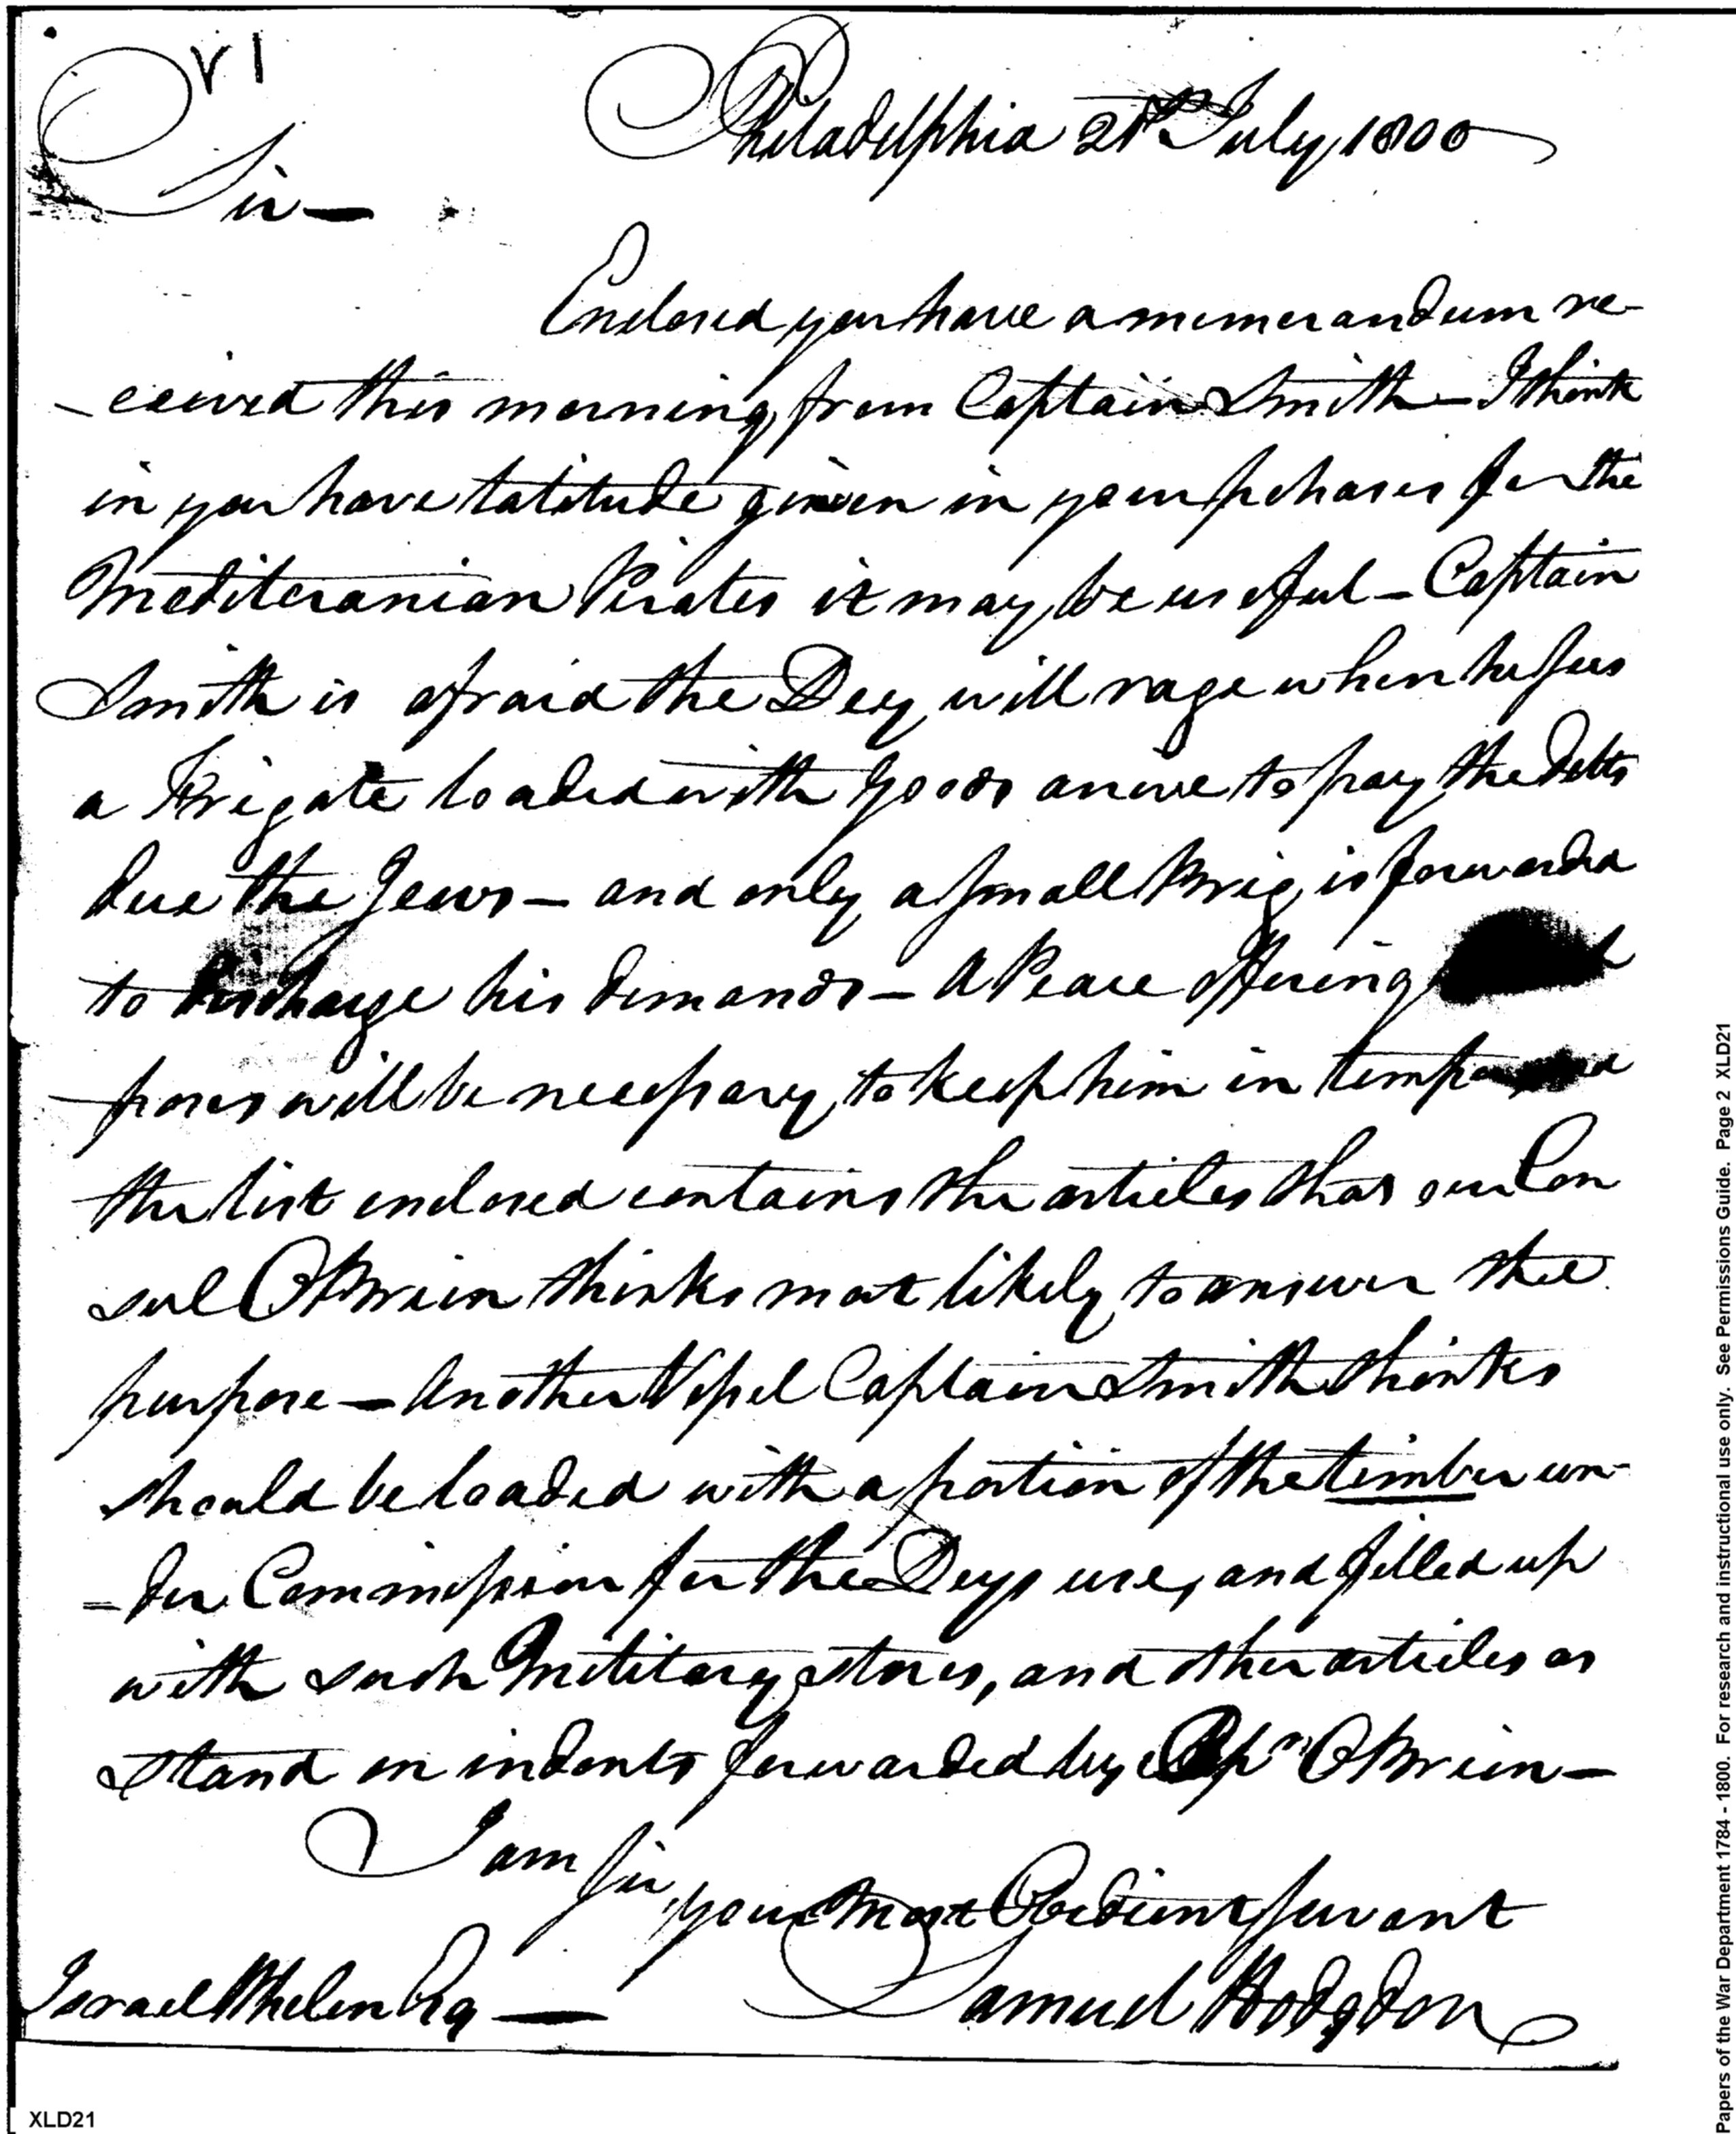 Philadelphia 21st July, 1800
Sir —
Enclosed you have a memorandum re-
- ceived this morning, from Captain Smith — I think
in you have latitude given in your pchases for the
Mediteranian Pirates it may, be useful — Captain
Smith is afraid the Dey, will rage when he sees
a Frigate loaded with goods arrive to pay, the debts
due the Jews — and only, a small Brig, is forwarded
to discharge his demands — A Peace offering
poses will be necessary, to keep him in temper
the list enclosed contains the articles that our Con
sul OBrien thinks most likely, to answer the
purpose — Another Vessel Captain Smith thinks
should be loaded with a portion of the timber un-
= der Commission for the Deys use, and filled up
with such Military stores, and other articles as
stand on indents forwarded by OBrien —
I am Sir
your most Obedient servant
Samuel Hodgdon
Israel Whelen Esq —
XLD21
Papers of the War Department 1784 - 1800. For research and instructional use only. See Permissions Guide. Page 2 XLD21